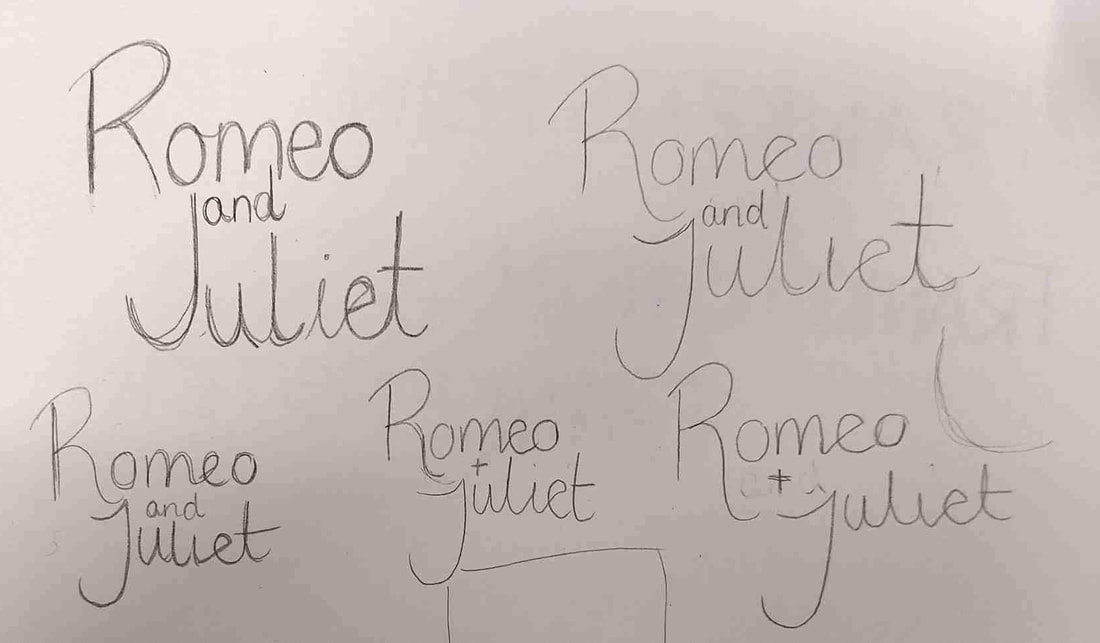 Romeo
and
Juliet
Romeo
and
Juliet
Romeo
and
Juliet
Romeo
+
Juliet
Romeo
+
Juliet